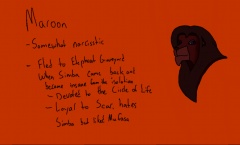 Maroon
- Somewhat narcissistic
- Fled to Elephant Graveyard
When Simba came back and
became insane from the isolation
- Devoted to the Circle of Life
- Loyal to Scar, hates
Simba but liked Mufasa